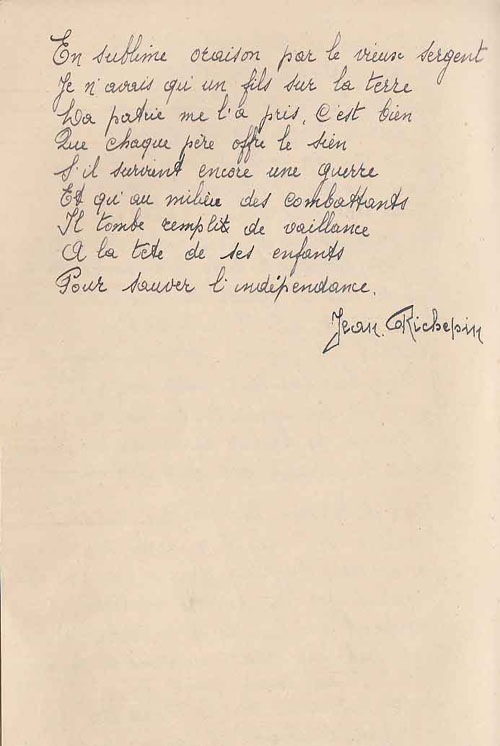 En sublime oraison par le vieux sergent
Je n'avais qu'un fils sur la terre
La patrie me l'a pris, C'est bien
Que chaque père offre le sien
S'il survient encore une guerre
Et qu'au milieu des combattants
Il tombe remplit de vaillance
A la tete de ses enfants
Pour sauver l'indépendance.
Jean Richepin